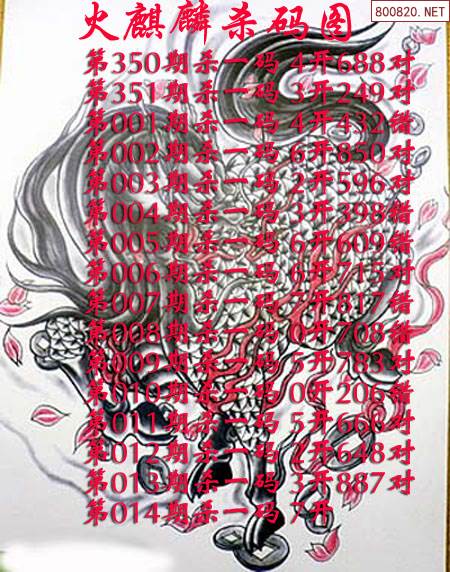 火麒麟杀码图
800820.NET
第350期杀一码 4开688对
第351期杀一码 3开249对
第001期杀一码 4开432错
第002期杀一码 6开850对
第003期杀一码 2开596对
第004期杀一码 3开398错
第005期杀一码 6开609错
第006期杀一码 6开715对
第007期杀一码 7开817错
第008期杀一码 0开708错
第009期杀一码 5开783对
第010期杀一码 0开206错
第011期杀一码 5开668对
第012期杀一码 开648对
第013期杀一码 3开887对
第014期杀一码 7开